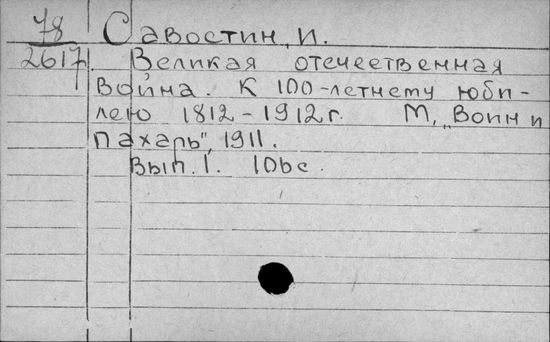 78 Савостин, И.
2617. Великая отечественная
война. К 100-летнему юби-
лею 1812-1912 г. М, „Воин и
пахарь", 1911.
Вып. 1. 10bc.